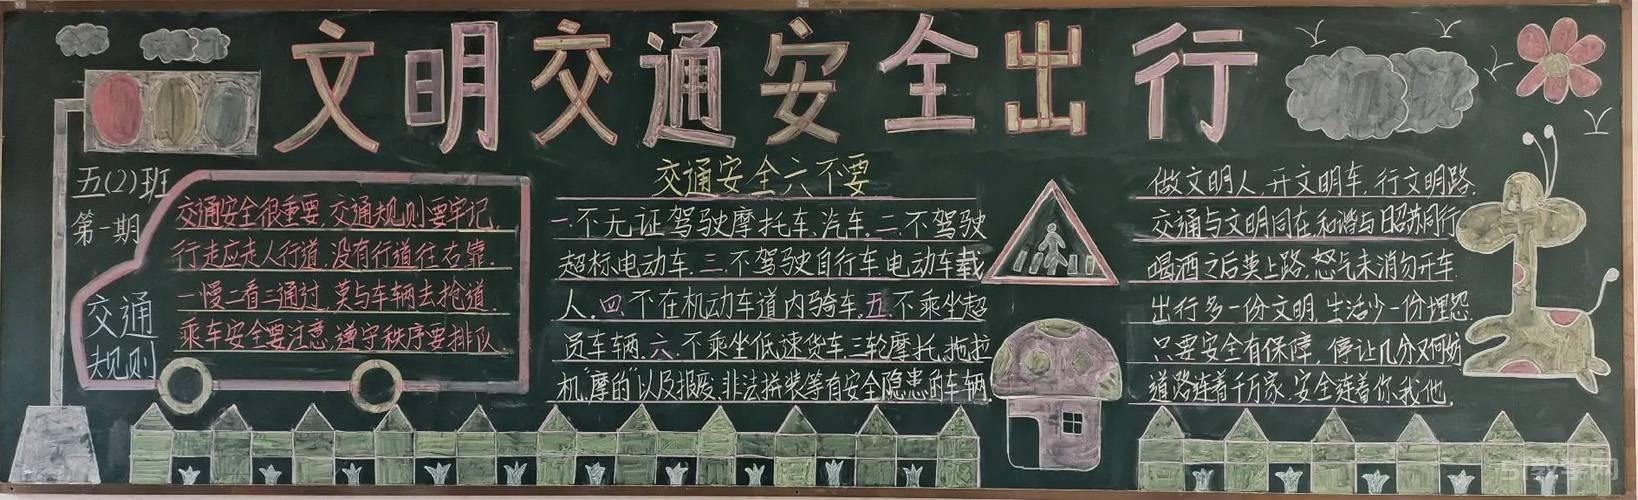 文明交通安全出行
五(2)班
第一期
交通
规则
交通安全很重要,交通规则要牢记.
行走应走人行道,没有行道往右靠.
一慢二看三通过,莫与车辆去抢道.
乘车安全要注意,遵守秩序要排队.
交通安全六不要
一.不无证驾驶摩托车、汽车.二.不驾驶
超标电动车.三.不驾驶自行车、电动车载
人.四.不在机动车道内骑车.五.不乘坐超
员车辆.六.不乘坐低速货车、三轮摩托、拖拉
机、"摩的"以及报废、非法拼装等有安全隐患的车辆.
做文明人,开文明车,行文明路.
交通与文明同在,和谐与昭苏同行.
喝酒之后莫上路,怒气未消勿开车.
出行多一份文明,生活少一份埋怨.
只要安全有保障,停让几分又何妨
道路连着千万家,安全连着你我他.
51教学网